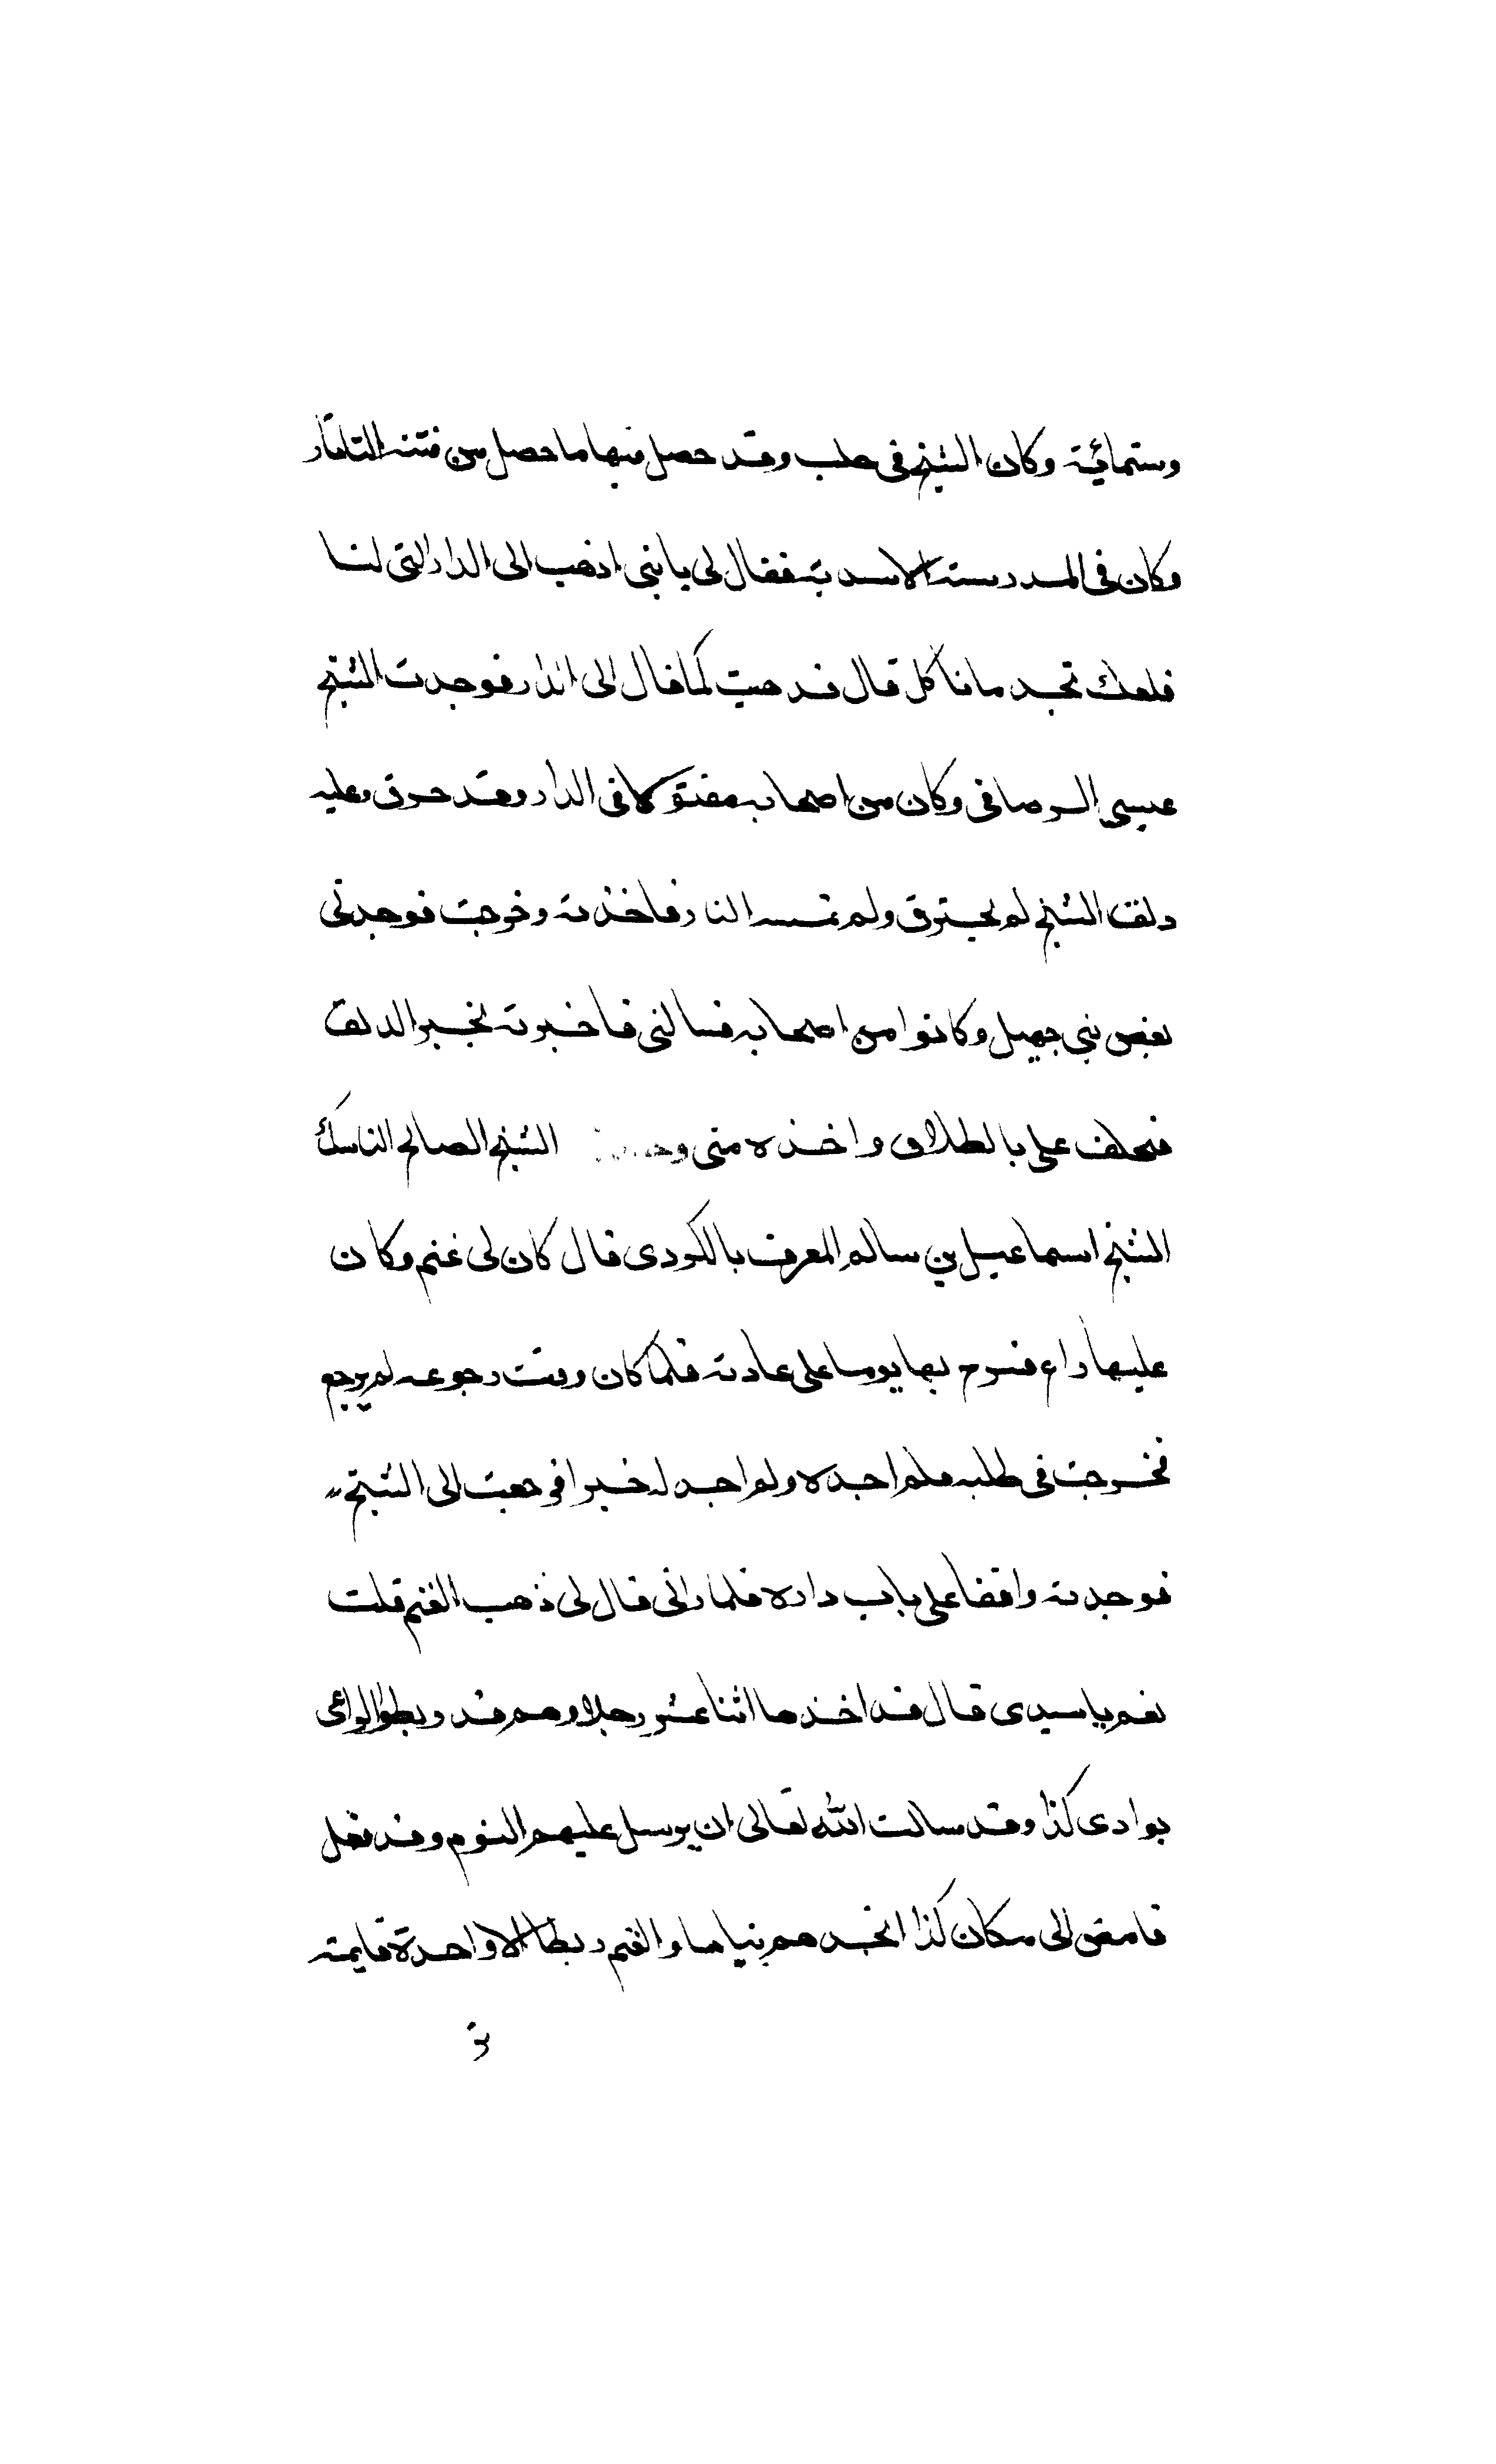 وستمائية وكان الشيخ في حلب وقد حصل فيها ما حصل من فتنه التاتار
وكان في المدرسة الاسدية فقال لي يا بني اذهب الى الدار التي لنا
فلعلك تجد ما ناكل قال فذهبت كما قال الى الدار فوجدت الشيخ
عيسى الرصافي وكان من اصحابه مقتولا في الدار وقد حرق وعليه
دلق الشيخ لم يحترق ولم تمسه النار فاخذته وخرجت فوجدني
بعض بني جهبل وكانوا من اصحابه فسالني فاخبرته بخبر الدلق
فحلف علي بالطلاق واخذه مني الشيخ الصالح الناسك
الشيخ اسماعيل بن سالم المعرف بالكردي قال كان لي غنم وكان
عليها راع فسرح بها يوما على عادته فلما كان وقت رجوعه لم يرجع
فخرجت في طلبه فلم اجده ولم اجد له خبرا فرجعت الى الشيخ
فوجدته واقفا على باب داره فلما راني قال لي ذهب الغنم قلت
نعم يا سيدي قال قد اخذها اثنا عشر رجلا وهم قد ربطوا الراعي
بوادي كذا وقد سالت الله تعالى ان يرسل عليهم النوم وقد فعل
فامض الى مكان كذا تجدهم نياما والغنم ربطا الا واحدة قايمة